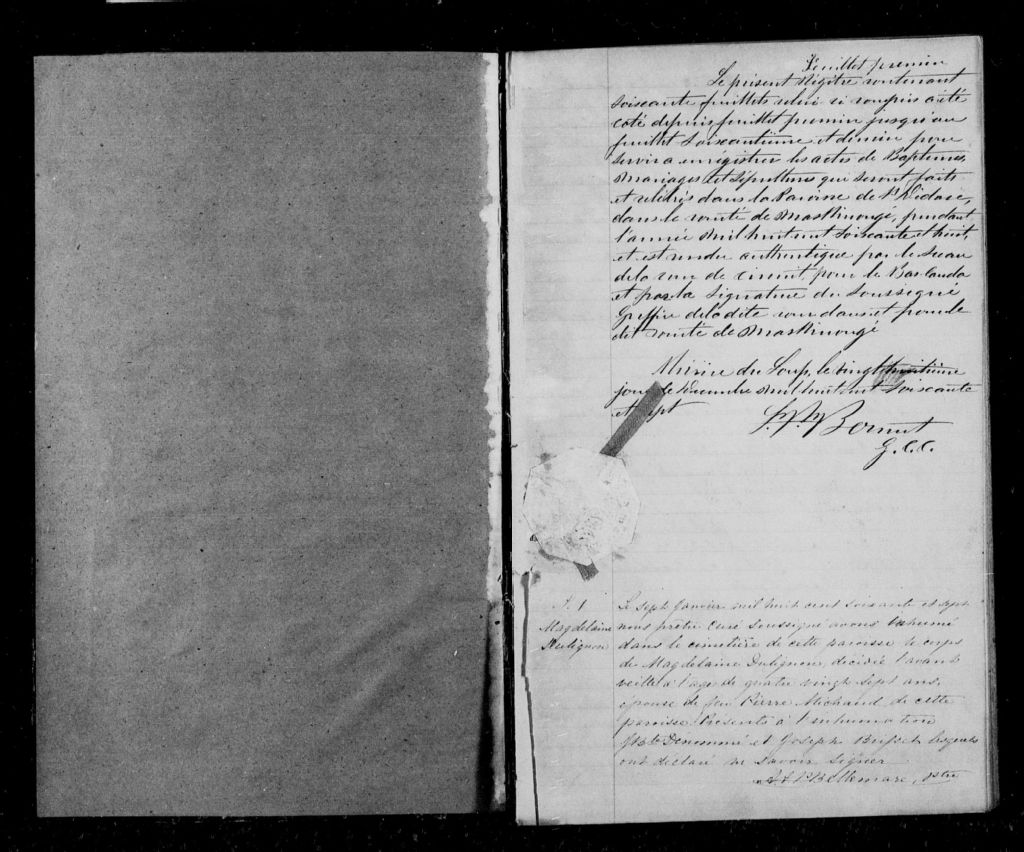 Feuillet premier
Le présent Régître contenant
soixante feuillets celui ci compris a été
coté depuis feuillet premier jusqu'au
feuillet soixantième et dernier pour
servir a enrégistrer les actes de Baptêmes,
Mariages et Sépultures qui seront faits
et célébrés dans la Paroisse de St Didace,
dans le comté de Maskinongé, pendant
l'année mil huit cent soixante et huit,
et est rendu authentique par le sceau
de la cour de circuit pour le Bas Canada
et par la signature du soussigné
Greffier de la dite cour dans et pour le
dit comté de Maskinongé
Rivière du Loup, le vingt huitième
jour de Décembre mil huit cent soixante
et sept
G. C. C.
Le sept Janvier mil huit cent soixante et sept
A. 1
nous prêtre curé soussigné avons inhumé
Magdelaine
dans le cimetière de cette paroisse le corps
Dutignon
de Magdelaine Dutignon, décédée l'avant
veille à l'age de quatre vingt sept ans,
épouse de feu Pierre Michaud de cette
paroisse. Présents à l'inhumation
J Bte Denommé et Joseph Brisset lesquels
ont déclaré ne savoir signer
Bellemare, Ptre